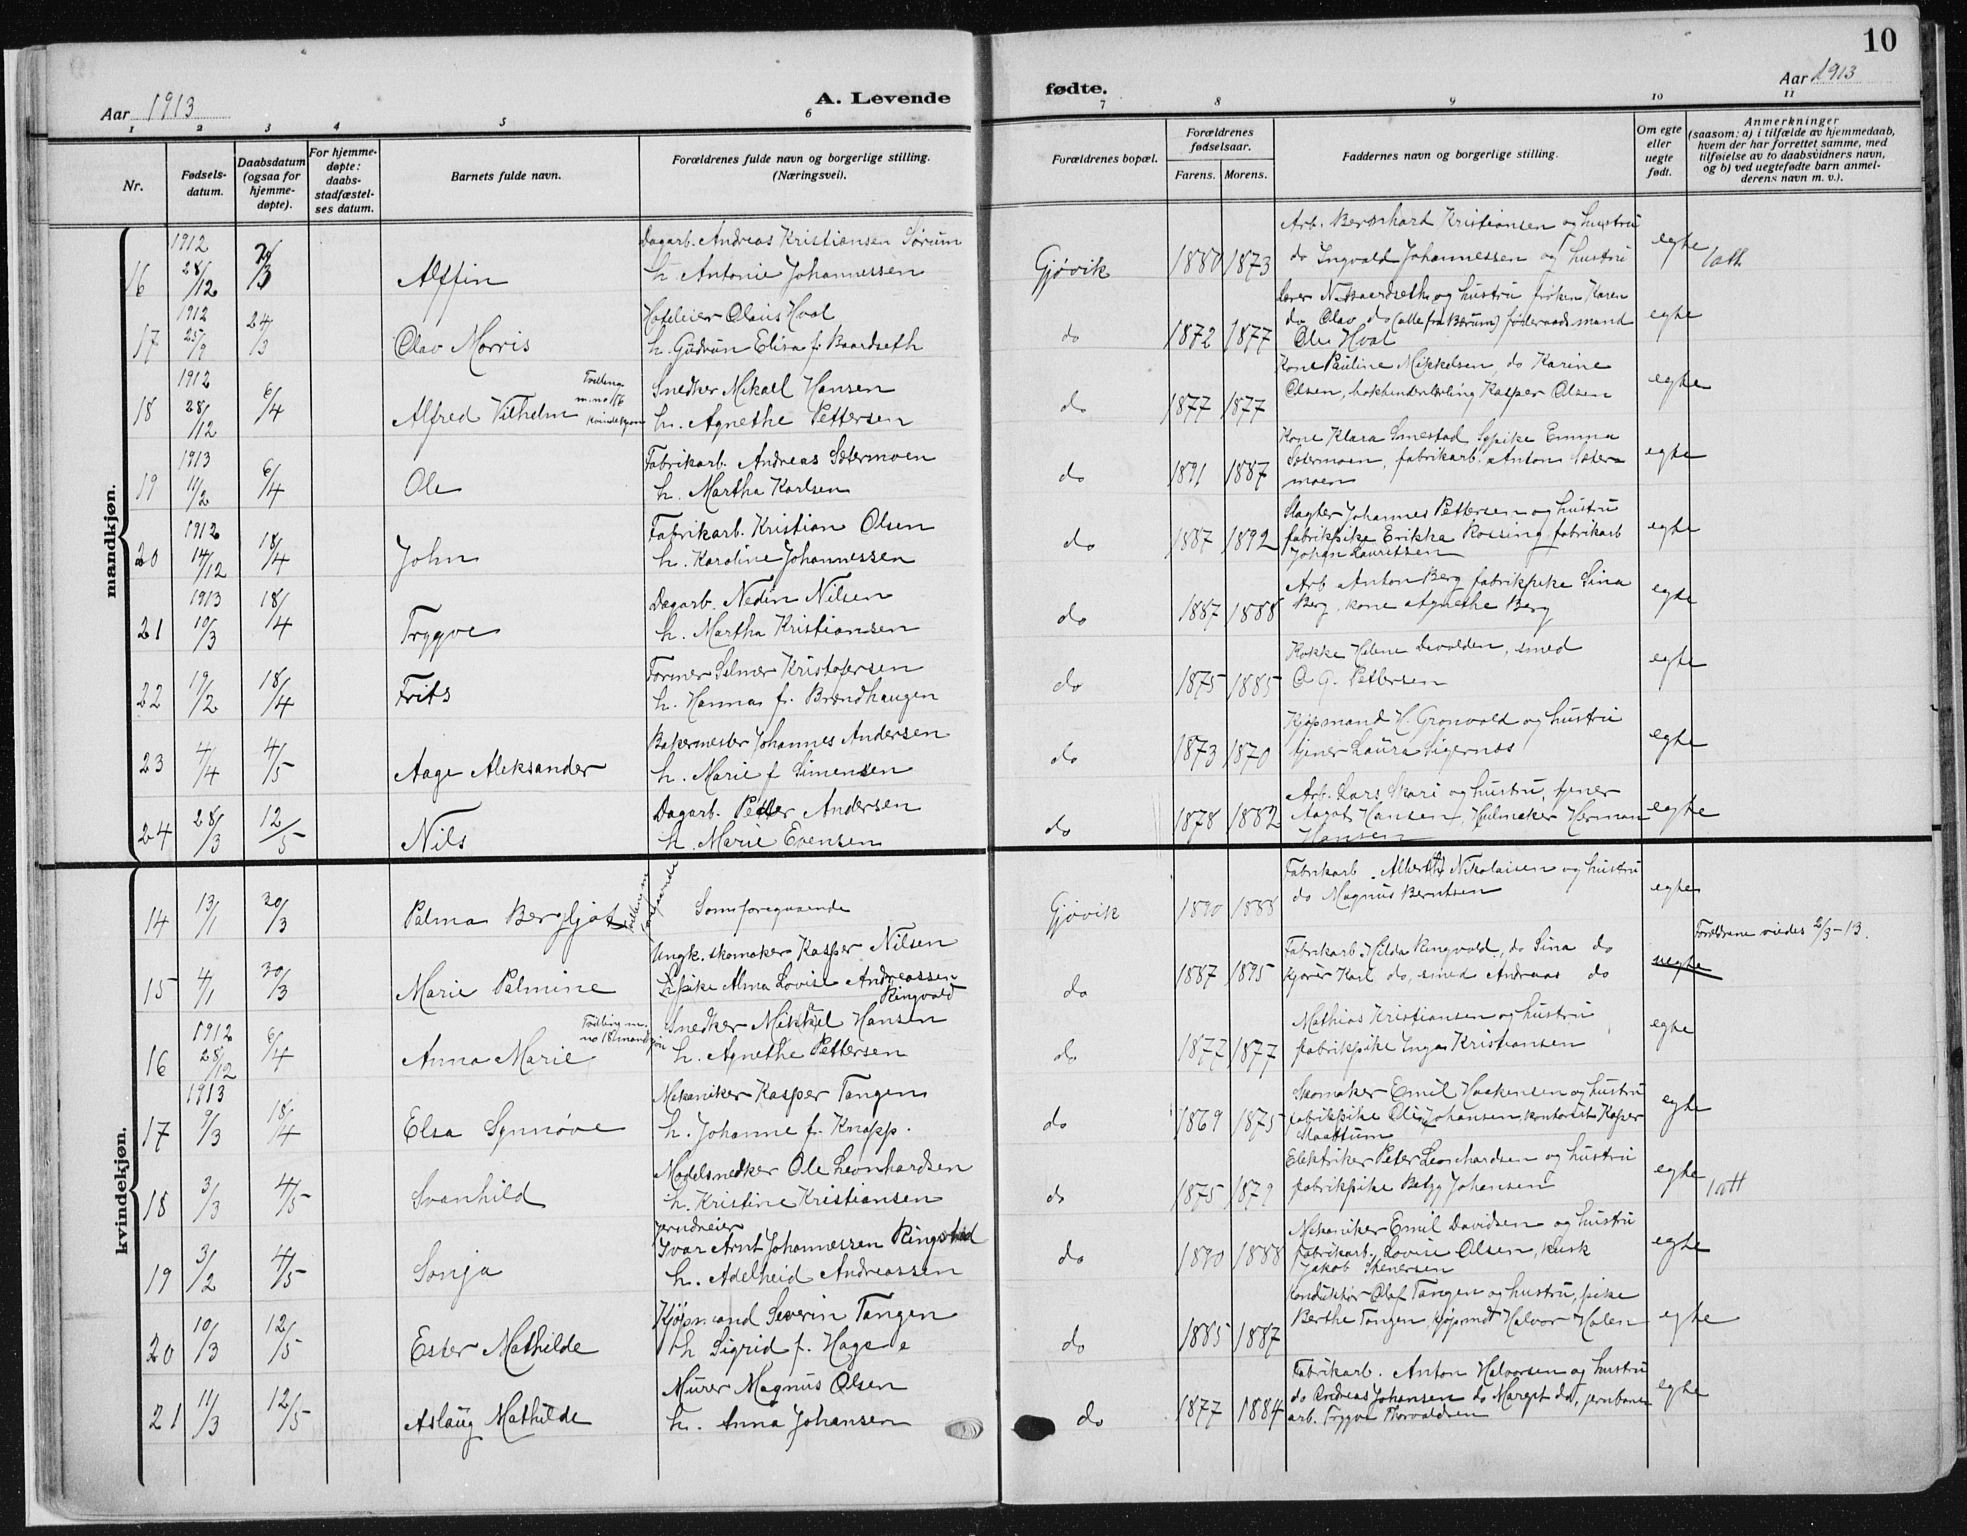 10
Aar 1913
A. Levende
fødte.
Aar 1913
1 2 3 4 5 6 7 8 9 10 11
Nr.
Fødsels-
datum.
Daabsdatum
(ogsaa for
hjemme-
døpte).
For hjemme-
døpte:
daabs-
stadfæstel-
ses datum.
Barnets fulde navn.
Forældrenes fulde navn og borgerlige stilling.
(Næringsvei).
Forældrenes bopæl.
Forældrenes
fødselsaar.
Farens. Morens.
Faddernes navn og borgerlige stilling.
Om egte
eller
uegte
født.
Anmerkninger
(saasom: a) i tilfælde av hjemmedaab,
hvem der har forrettet samme, med
tilføielse av to daabsvidners navn,
og b) ved uegtefødte barn anmel-
derens navn m. v.).
mandkjøn.
16 1912 28/12 /3 Alffin
Dagarb. Andreas Kristiansen Sørum
h. Antonie Johannessen
Gjøvik 1880 1873
Arb. Bernhard Kristiansen og hustru
do Ingvald Johannessen og hustru
egte
17 1912 25/9 24/3 Olav Morris
Hoteleier Olaus Hval
h. Gudrun Elisa f. Baardseth
do 1872 1877
Lærer N. Baardseth og hustru frøken Karen
do Olav do (alle fra Bærum) føderaadsmand
Ole Hval
egte
18 1912 28/12 6/4 Alfred Vilhelm
Tvilling
m. no 16
kvindekjøn
Snedker Mikael Hansen
h. Agnethe Pettersen
do 1877 1877
Kone Pauline Mikkelsen, do Karine
Olsen, Kasper Olsen
egte
19 1913 11/2 6/4 Ole
Fabrikarb. Andreas Sætermoen
h. Martha Karlsen
do 1891 1887
Kone Klara Smestad Sypike Emma
Sætermoen, fabrikarb. Anton Sæter-
moen
egte
20 1912 14/12 18/4 John
Fabrikarb. Kristian Olsen
h. Karoline Johannessen
do 1887 1892
Slagter Johannes Pettersen og hustru
fabrikpike Erikka Rossing fabrikarb
Johan Lauritssen
egte
21 1913 10/3 18/4 Trygve
Dagarb. Nedin Nilsen
h. Martha Kristiansen
do 1887 1888
Arb Anton Berg fabrikpike Lina
Berg, kone Agnethe Berg
egte
22 19/2 18/4 Frits
Former Selmer Kristofersen
h. Hanna f. Brændhaugen
do 1875 1885
Kokke Helene smed
O. G. Pettersen
egte
23 4/4 4/5 Aage Aleksander
Bakermester Johannes Andersen
h. Marie f Simensen
do 1873 1870
Kjøpmand H. Grønvold og hustru
tjener Laura Sigernes
egte
24 28/3 12/5 Nils
Dagarb. Petter Andersen
h. Marie Evensen
do 1878 1882
Arb. Lars Skari og hustru, tjener
Aagot Hansen, Hjulmaker Herman
Hansen
egte
kvindekjøn.
14 13/1 30/3 Palma Bergljot
Som foregaaende
Gjøvik 1890 1888
Fabrikarb. Albert Nikolaisen og hustru
do Magnus Berntsen
egte
15 4/1 30/3 Marie Palmine
Ungk. skomaker Kasper Nilsen
Pike Alma Lovise Andreassen
Ringvold
do 1887 1895
Fabrikarb. Hilda Ringvold, do Lina do
kjører Karl do, smed Andreas do
uegte
Forældrene viedes 2/3-13.
16 1912 28/12 6/4 Anna Marie
Tvilling m.
no 18 mandkjøn
Snedker Mikkel Hansen
h. Agnethe Pettersen
do 1877 1877
Mathias Kristiansen og hustru
fabrikpike Inga Kristiansen
egte
17 1913 9/3 18/4 Elsa Synnøve
Mekaniker Kasper Tangen
h. Johanne f. Knapp.
do 1869 1875
Skomaker Emil Haakensen og hustru
fabrikpike Olga Johansen kontorist Kasper
egte
18 3/3 4/5 Svanhild
Modelsnedker Ole Leonhardsen
h. Kristine Kristiansen
do 1875 1879
Elektriker Peter Leonhardsen og hustru
fabrikpike Betzy Johansen
egte
19 3/2 4/5 Sonja
Ivar Arnt Johannessen Ringstad
h. Adelheid Andreassen
do 1890 1888
Mekaniker Emil Davidsen og hustru
fabrikarb. Lovise Olsen, kusk
Jakob Stenersen
egte
20 10/3 12/5 Ester Mathilde
Kjøpmand Severin Tangen
h Sigrid f. Hage
do 1885 1887
Konduktør Olaf Tangen og hustru, pike
Berthe Tangen Kjøpmd Halvor Holen
egte
21 11/3 12/5 Aslaug Mathilde
Murer Magnus Olsen
h. Anna Johansen
do 1877 1884
Fabrikarb. Anton Halvorsen og hustru
do Andreas Johansen do Margit do, jernbane-
arb. Trygve Thorvaldsen
egte